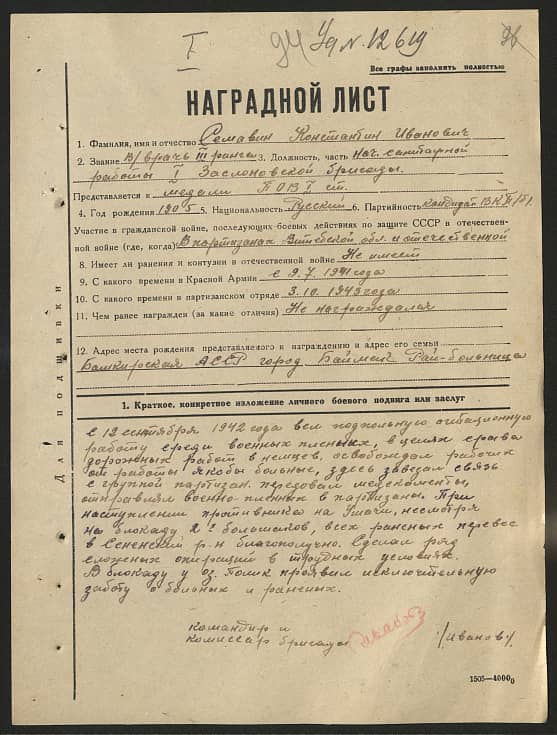 I
94
Уд N. 12619
Все графы заполнять полностью
НАГРАДНОЙ ЛИСТ
1. Фамилия, имя и отчество Семавин Константин Иванович
2. Звание В/врачь III ранга 3. Должность, часть Нач. санитарной
работы I Заслоновской Бригады.
Представляется к медали П О В I ст.
4. Год рождения 1905 5. Национальность Русский 6. Партийность кандидат ВКП/б/.
Участие в гражданской войне, последующих боевых действиях по защите СССР в отечествен-
ной войне (где, когда) В партизанах Витебской обл. и отечественной
8. Имеет ли ранения и контузии в отечественной войне Не имеет
9. С какого времени в Красной Армии с 9.7.1941 года
10. С какого времени в партизанском отряде 3.10.1943 года
11. Чем ранее награжден (за какие отличия) Не награждался
12. Адрес места рождения представляемого к награждению и адрес его семьи
Башкирская АССР город Баймак Рай-больница
Для подшивки
1. Краткое, конкретное изложение личного боевого подвига или заслуг
с 12 сентября 1942 года вел подпольную агитационную
работу среди военных пленых, в целях срыва
дорожных работ в немцев, освобождал рабочих
от работы якобы больные, здесь завезал связь
с группой партизан передовал медекоменты,
отправлял военно-пленых в партизаны. При
наступлении противника на Ушачи, несмотря
на блокаду 2х болошаков, всех раненых перевес
в Сененский р-н благополучно. Сделал ряд
сложных операций в трудных условиях.
В блокаду у оз. Полик проявил исключительную
заботу о больных и раненых.
командир и
комиссар бригады /Иванов/
1505—4000